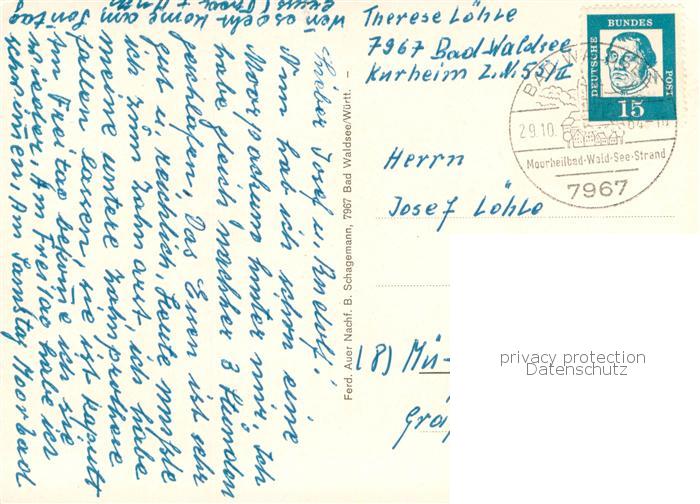 Lieber Josef u. Rudolf!
Nun hab ich schon eine
Moorpackung hinter mir. Ich
habe gleich nachher 3 Stunden
geschlafen. Das Essen ist sehr
gut u. reichlich. Heute mußte
ich zum Zahnarzt, ich habe
meine untere Zahnprothese
fallen lassen, sie ist kaputt
Am Freitag bekomme ich sie
wieder. Am Freitag habe ich
schwimmen, Am Samstag Moorbad
wen es geht komm am Sontag
Ferd. Auer Nachf. B. Schagemann, 7967 Bad Waldsee/Württ. –
Therese Löhle
7967 Bad-Waldsee
Kurheim Z.N. 53/II
DEUTSCHE
BUNDES
POST
15
BAD WALDSEE
29.10.
64-10
Moorheilbad-Wald-See-Strand
7967
Herrn
Josef Löhle
(8) Mü-
Grä
privacy protection
Datenschutz